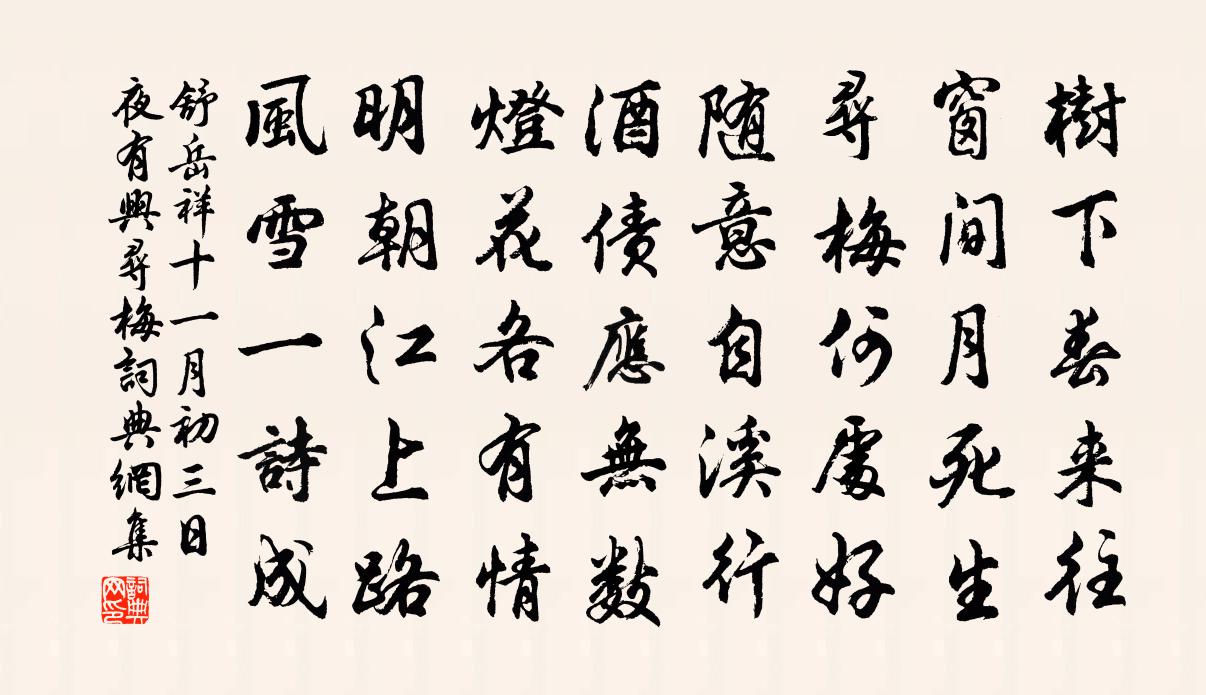 樹下春来往
窗间月死生
尋梅何處好
随意自溪行
酒债應無數
燈花各有情
明朝江上路
風雪一詩成
舒岳祥十一月初三日
夜有興尋梅詞典網集
詞典
网印